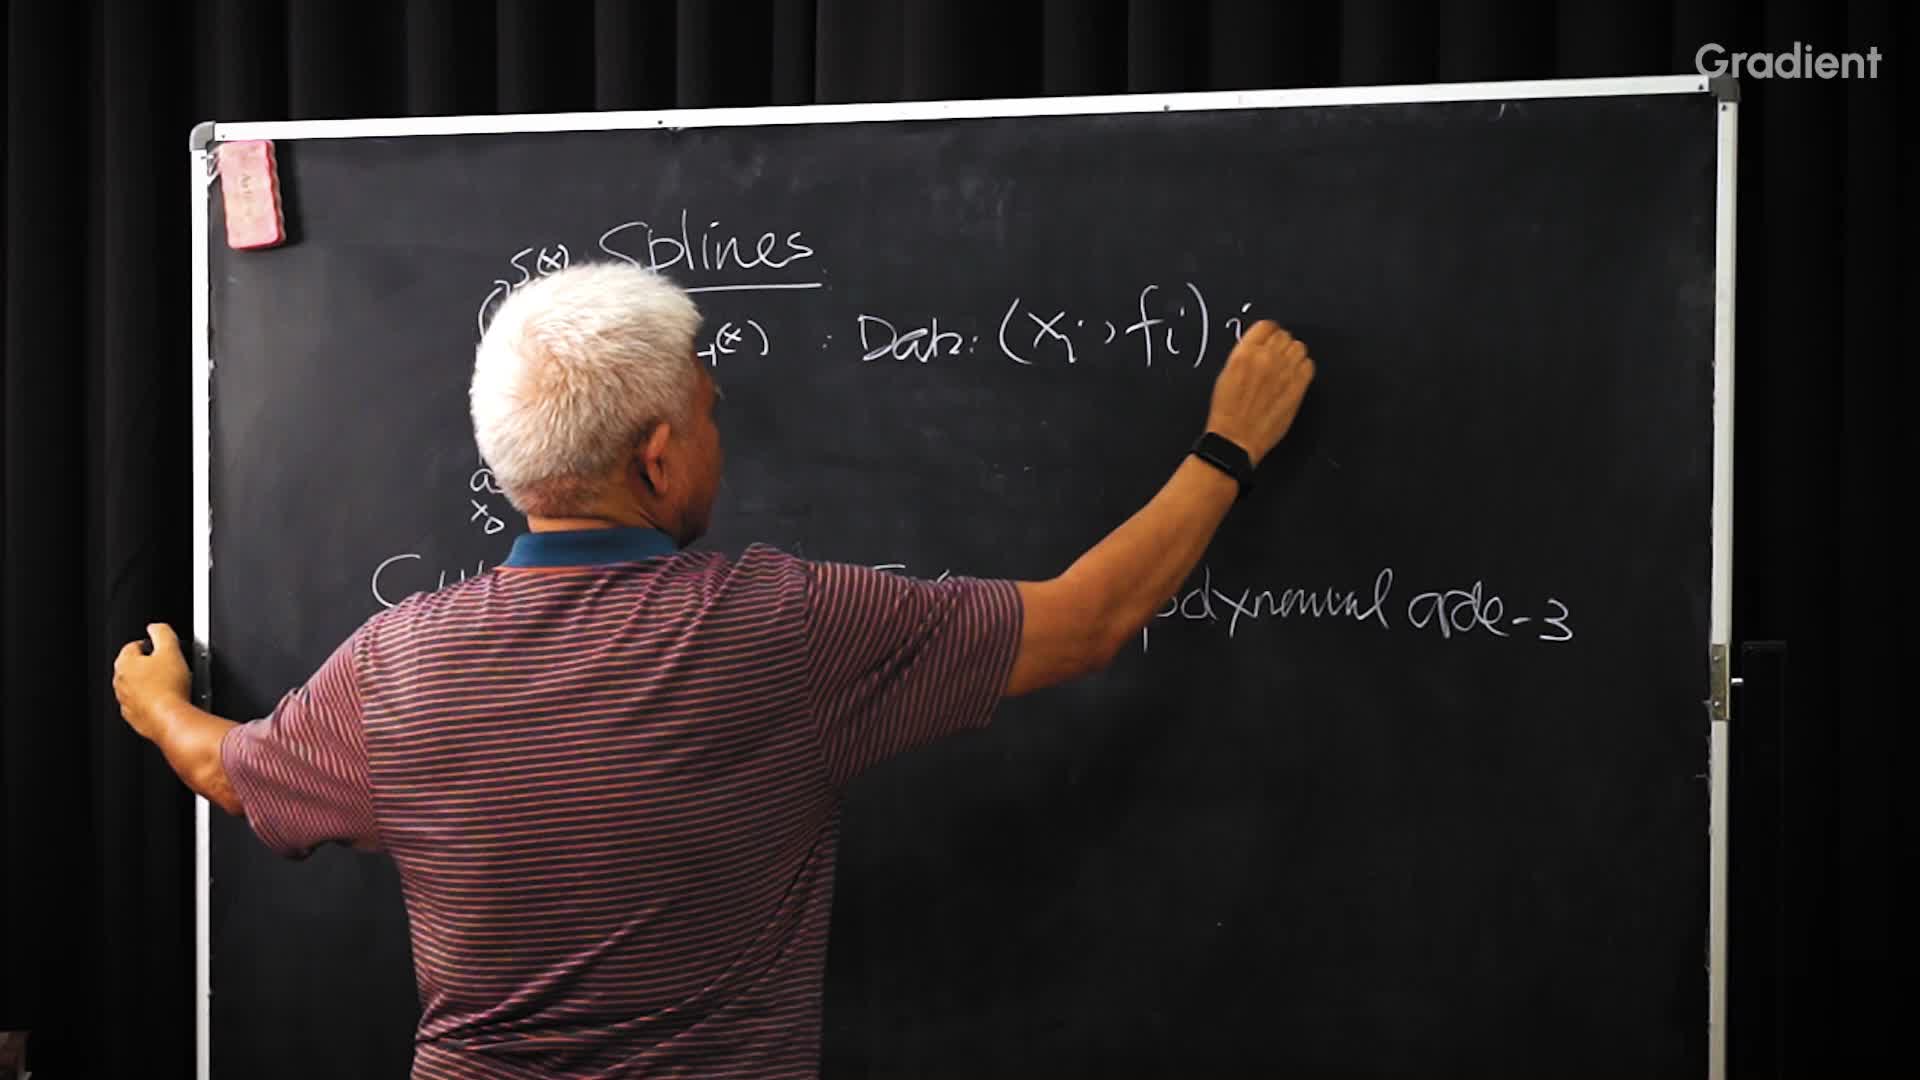 Gradient
Splines
S(x)
(x) : Data: (xi, fi) i
a
x0
polynomial orde-3